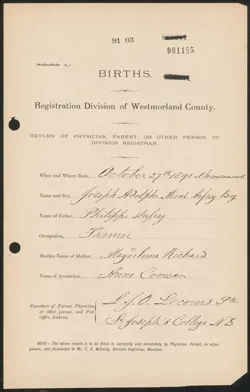 91 03
001185
(Schedule A.)
BIRTHS.
Registration Division of Westmorland County.
RETURN OF PHYSICIAN, PARENT, OR OTHER PERSON TO
DIVISION REGISTRAR.
When and Where Born, October 27th 1891
Name and Sex, Joseph Adolphe Boy
Name of Father, Philippe
Farmer
Maiden Name of Mother, Richard
Name of Accoucheur, Anne Comeau
Signature of Parent, Physician
or other person, and Post
Office Address
St Joseph's College N.B
NOTE.—The above return is to be filled in carefully and accurately by Physician, Parent, or other
person, and forwarded to Mr. Division Registrar, Moncton.